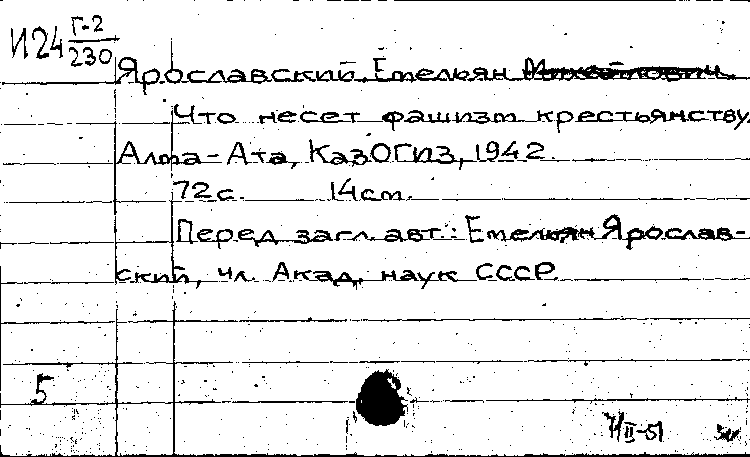 И24 Г-2
230
Ярославский, Емельян Михайлович.
Что несет фашизм крестьянству.
Алма-Ата, КазОГИЗ, 1942.
72 с. 14 см.
Перед загл. авт.: Емельян Ярослав-
ский, чл. Акад. наук СССР.
5
II-51